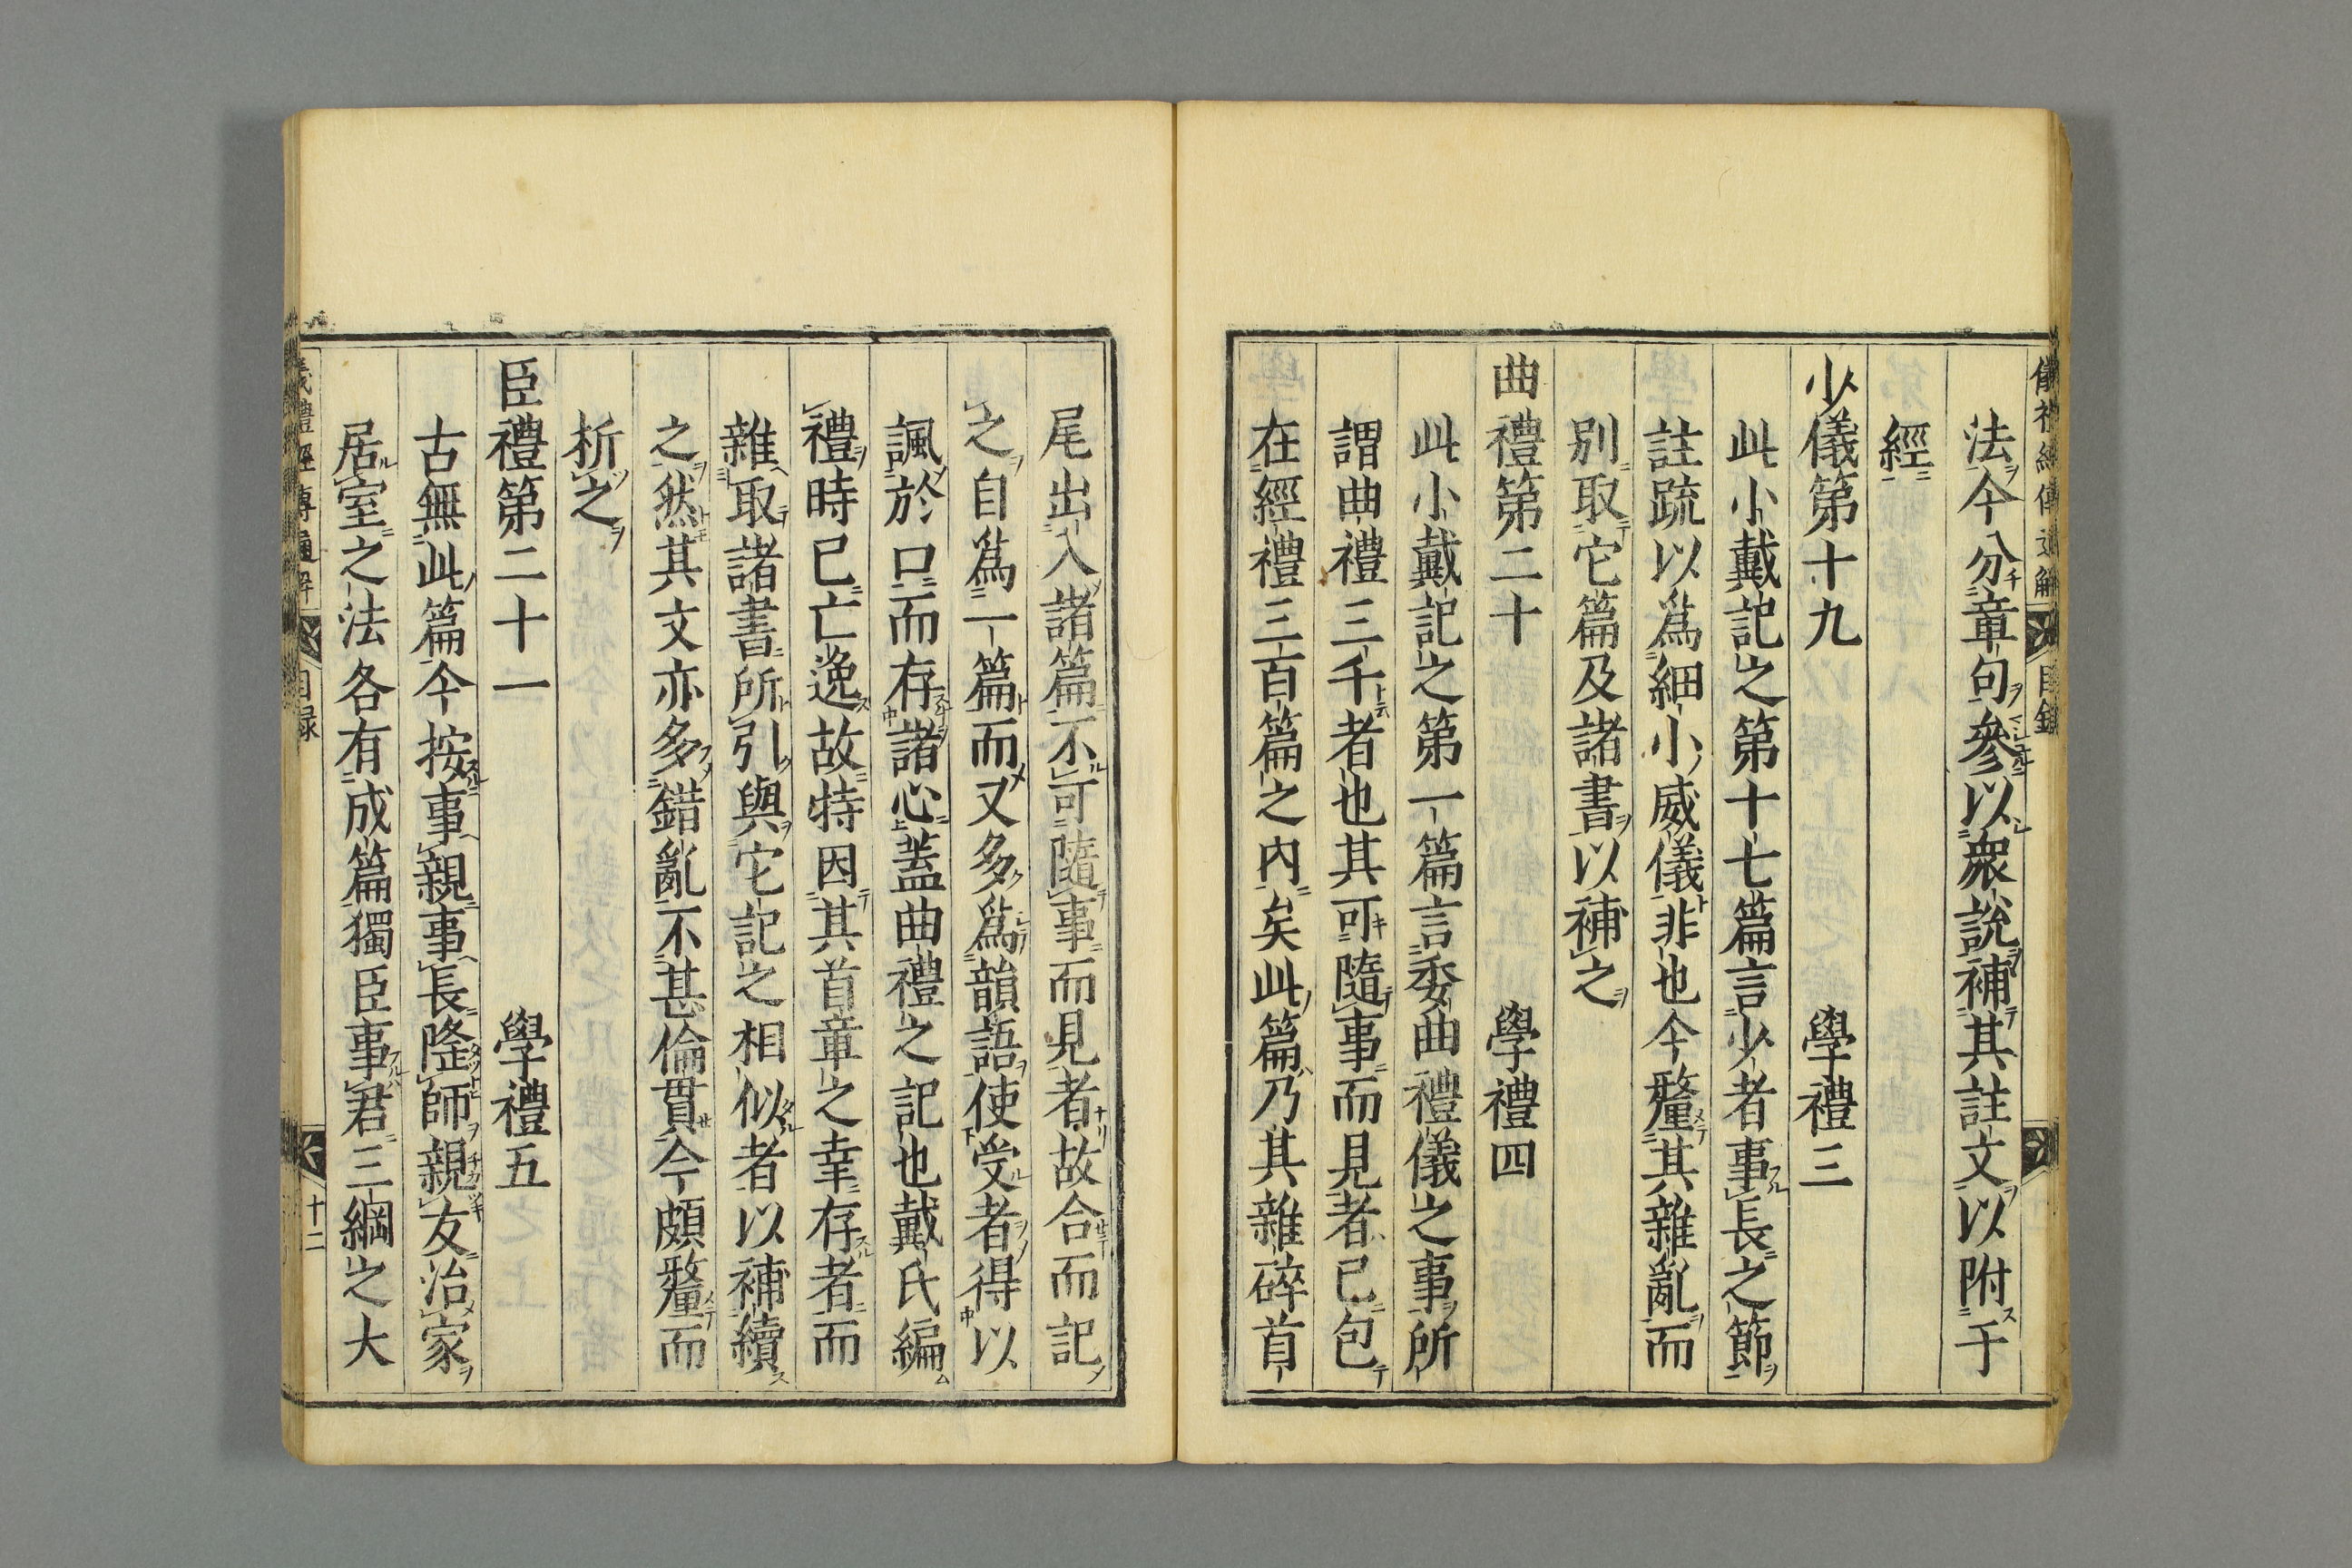 儀禮經傳通解 目錄
法今分章句參以衆說補其註文以附于
經
少儀第十九 學禮三
此小戴記之第十七篇言少者事長之節
註疏以爲細小威儀非也今釐其雜亂而
別取它篇及諸書以補之
曲禮第二十 學禮四
此小戴記之第一篇言委曲禮儀之事所
謂曲禮三千者也其可隨事而見者已包
在經禮三百篇之内矣此篇乃其雜碎首
尾出入諸篇不可隨事而見者故合而記
之自爲一篇而又多爲韻語使受者得以
諷於口而存諸心蓋曲禮之記也戴氏編
禮時已亡逸故特因其首章之幸存者而
雜取諸書所引與它記之相似者以補續
之然其文亦多錯亂不甚倫貫今頗釐而
析之
臣禮第二十一 學禮五
古無此篇今按事親事長隆師親友治家
居室之法各有成篇獨臣事君三綱之大
儀禮經傳通解 目録 十二